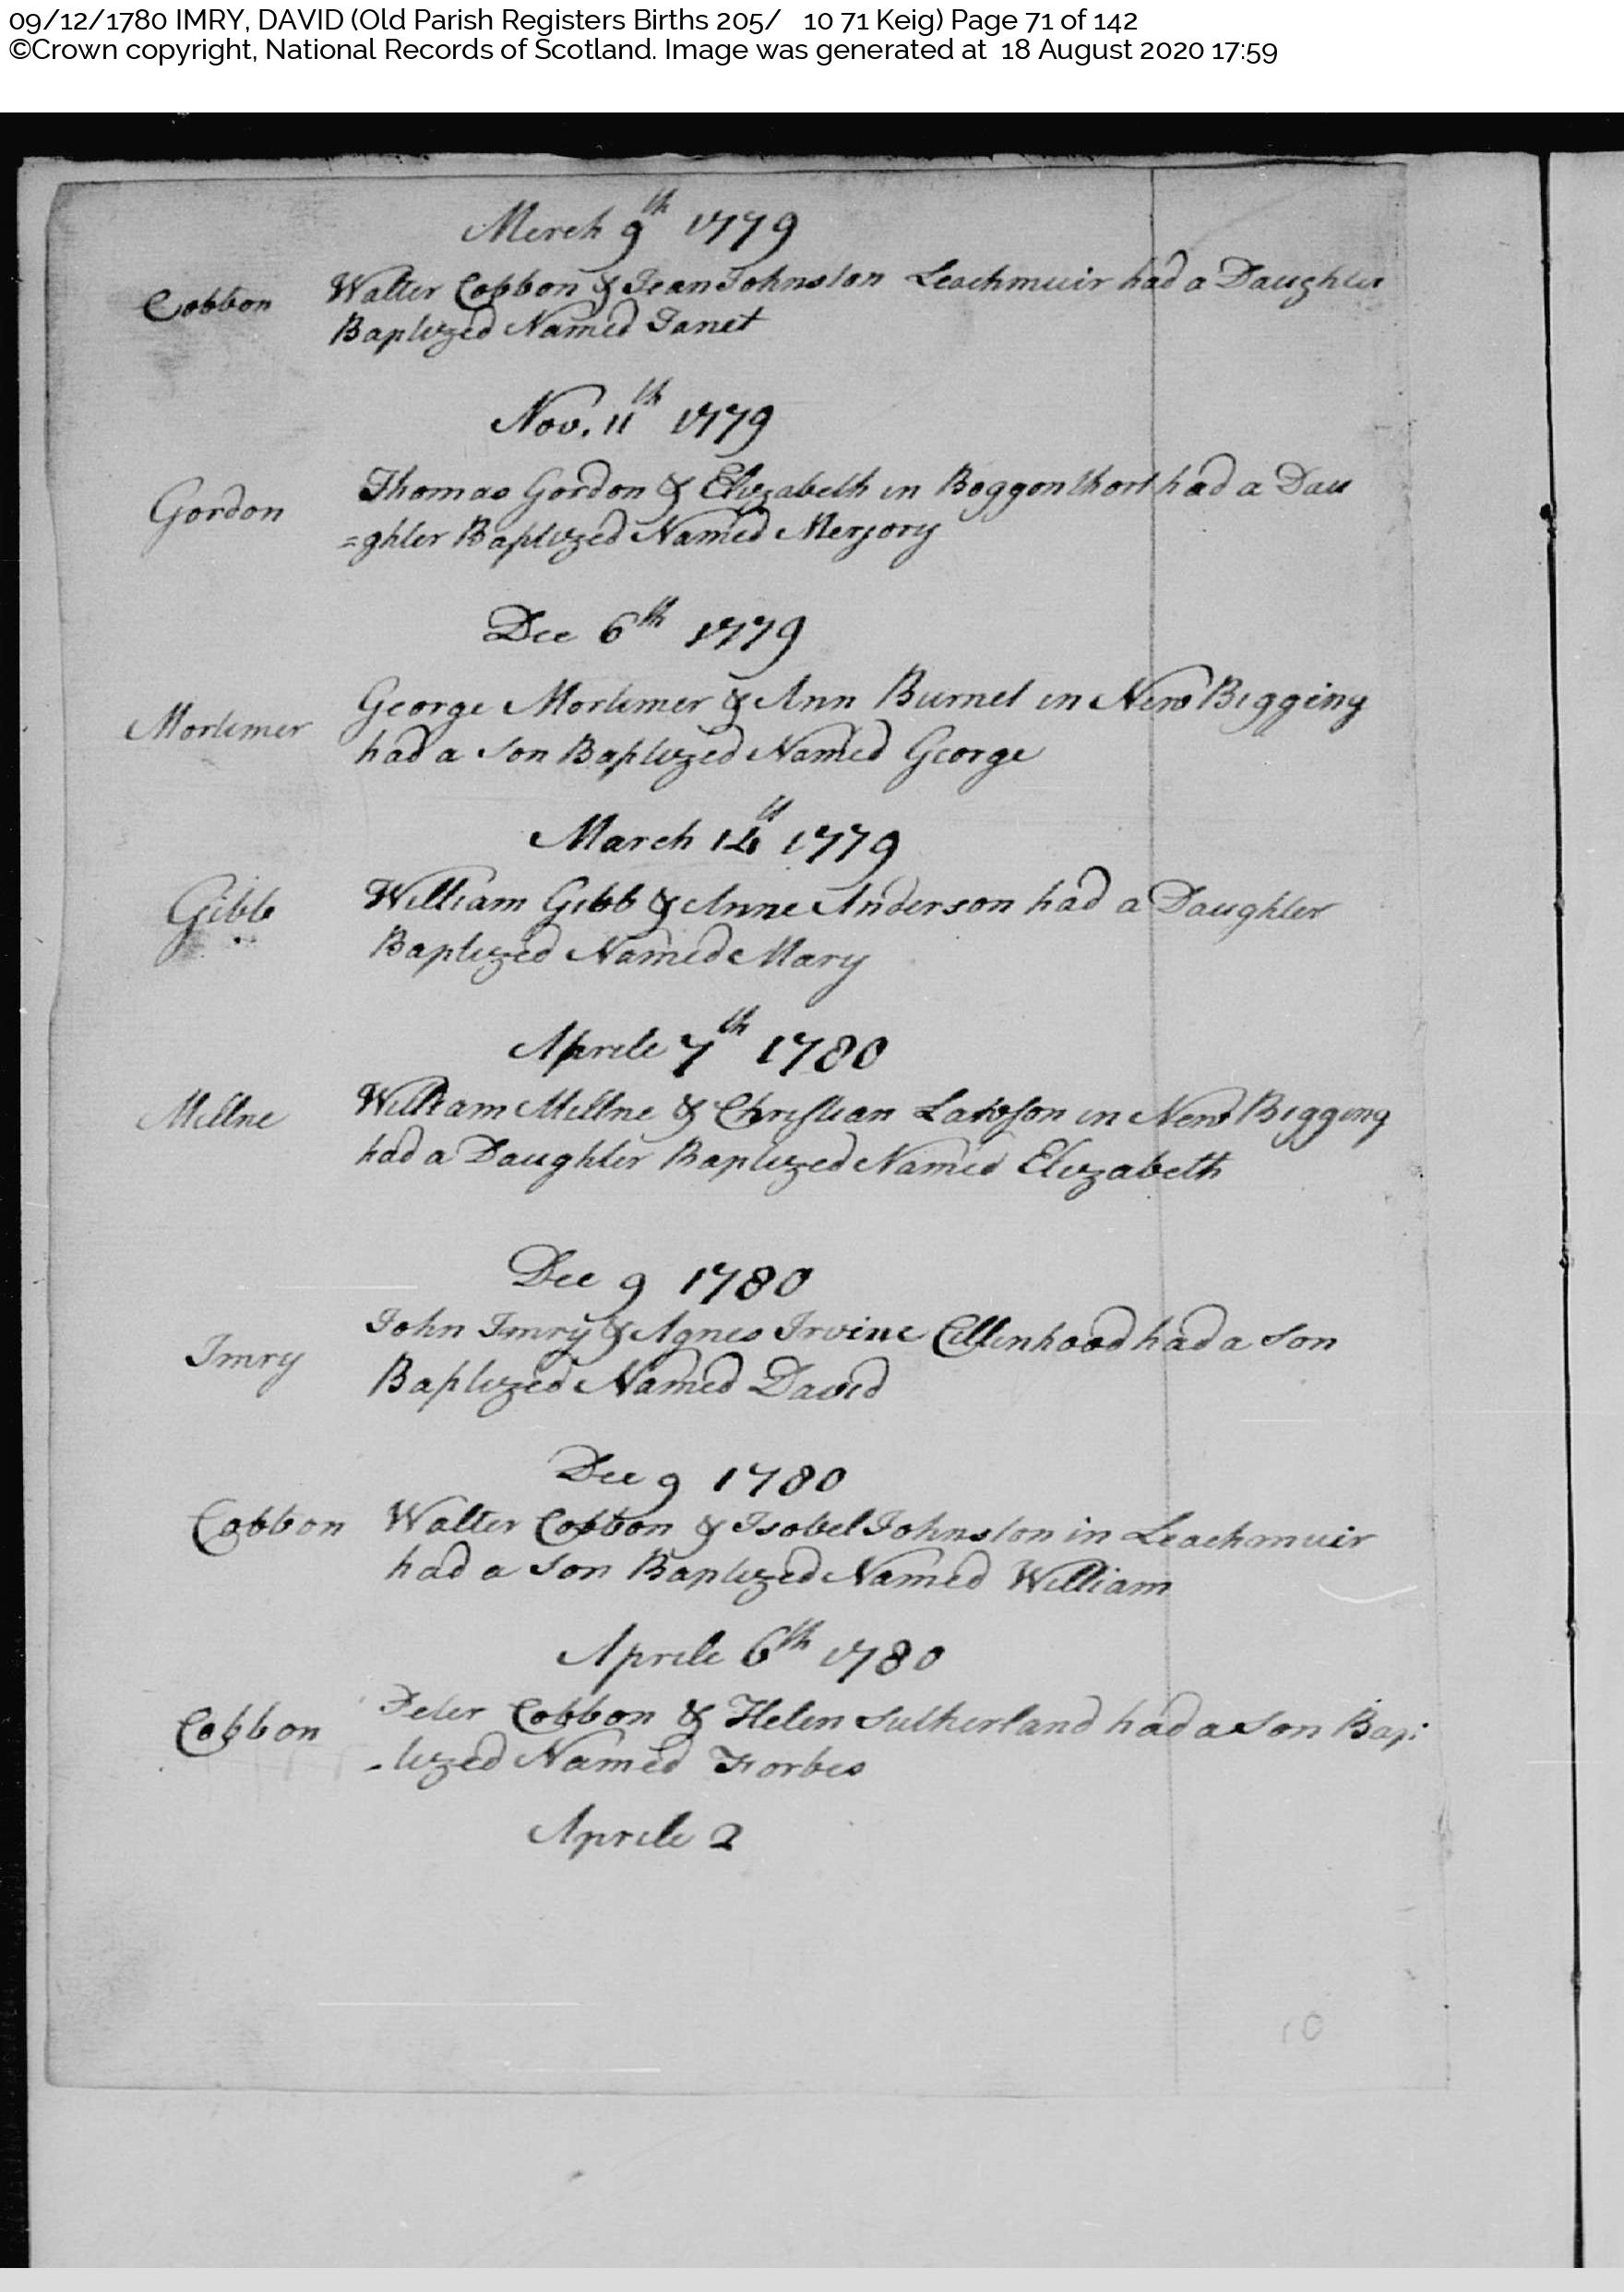 09/12/1780 IMRY, DAVID (Old Parish Registers Births 205/ 10 71 Keig) Page 71 of 142
©Crown copyright, National Records of Scotland. Image was generated at 18 August 2020 17:59
Merch 9th 1779
Cobbon Walter Cobbon & Jean Johnston Leachmuir had a Daughter
Baptized Named Janet
Nov. 11th 1779
Gordon Thomas Gordon & Elizabeth in had a Dau
=ghter Baptized Named Merjory
Dec 6th 1779
Mortimer George Mortimer & Ann Burnet in New Bigging
had a Son Baptized Named George
March 1779
Gibb William Gibb & Anne Anderson had a Daughter
Baptized Named Mary
Aprile 7th 1780
Millne William Millne & Christian Lawson in New Bigging
had a Daughter Baptized Named Elizabeth
Dec 9 1780
Imry John Imry & Agnes Irvine had a Son
Baptized Named David
Dec 9 1780
Cobbon Walter Cobbon & Isobel Johnston in Leachmuir
had a Son Baptized Named William
Aprile 6th 1780
Cobbon Peter Cobbon & Helen Sutherland had a Son Bap:
-tized Named Forbes
Aprile 2